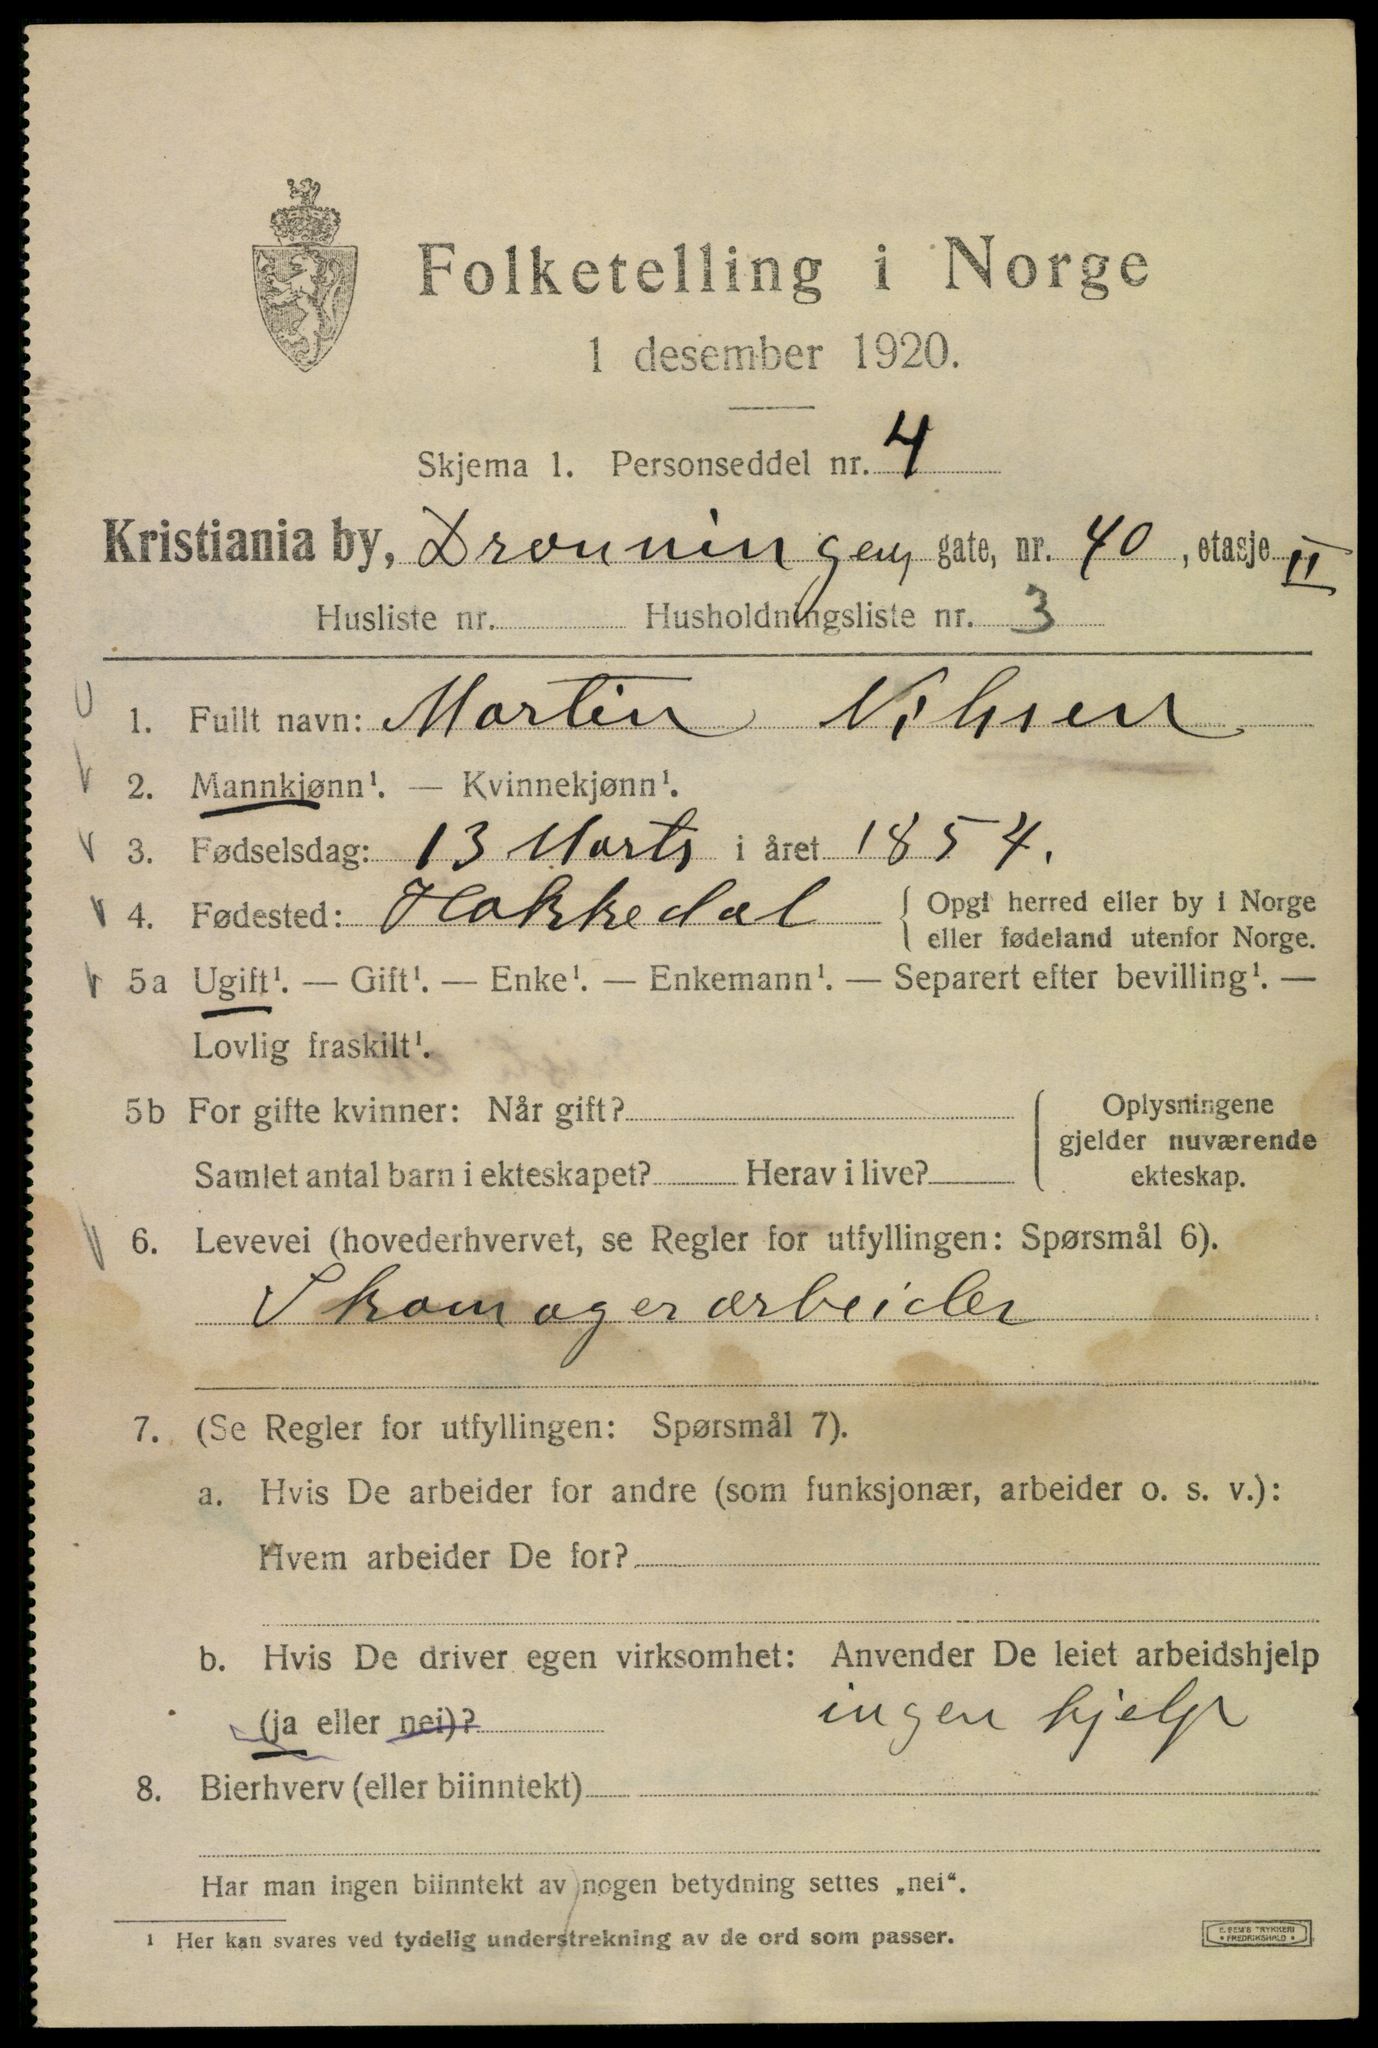 Folketelling i Norge
1 desember 1920.
Skjema 1. Personseddel nr. 4
Kristiania by, Dronningens gate, nr. 40, etasje II
Husliste nr. Husholdningsliste nr. 3
1. Fullt navn: Martin Nilsen
2. Mannkjønn¹. — Kvinnekjønn¹.
3. Fødselsdag: 13 Marts i året 1854.
4. Fødested: Hakkedal { Opgi herred eller by i Norge
eller fødeland utenfor Norge.
5a Ugift¹. — Gift¹. — Enke¹. — Enkemann¹. — Separert efter bevilling¹. —
Lovlig fraskilt¹.
5b For gifte kvinner: Når gift? { Oplysningene
gjelder nuværende
Samlet antal barn i ekteskapet? Herav i live? ekteskap.
6. Levevei (hovederhvervet, se Regler for utfyllingen: Spørsmål 6).
Skomagerarbeider
7. (Se Regler for utfyllingen: Spørsmål 7).
a. Hvis De arbeider for andre (som funksjonær, arbeider o. s. v.):
Hvem arbeider De for?
b. Hvis De driver egen virksomhet: Anvender De leiet arbeidshjelp
(ja eller nei)? ingen hjelp
8. Bierhverv (eller biinntekt)
Har man ingen biinntekt av nogen betydning settes „nei“.
¹ Her kan svares ved tydelig understrekning av de ord som passer.
E. SEM'S TRYKKERI
FREDRIKSHALD